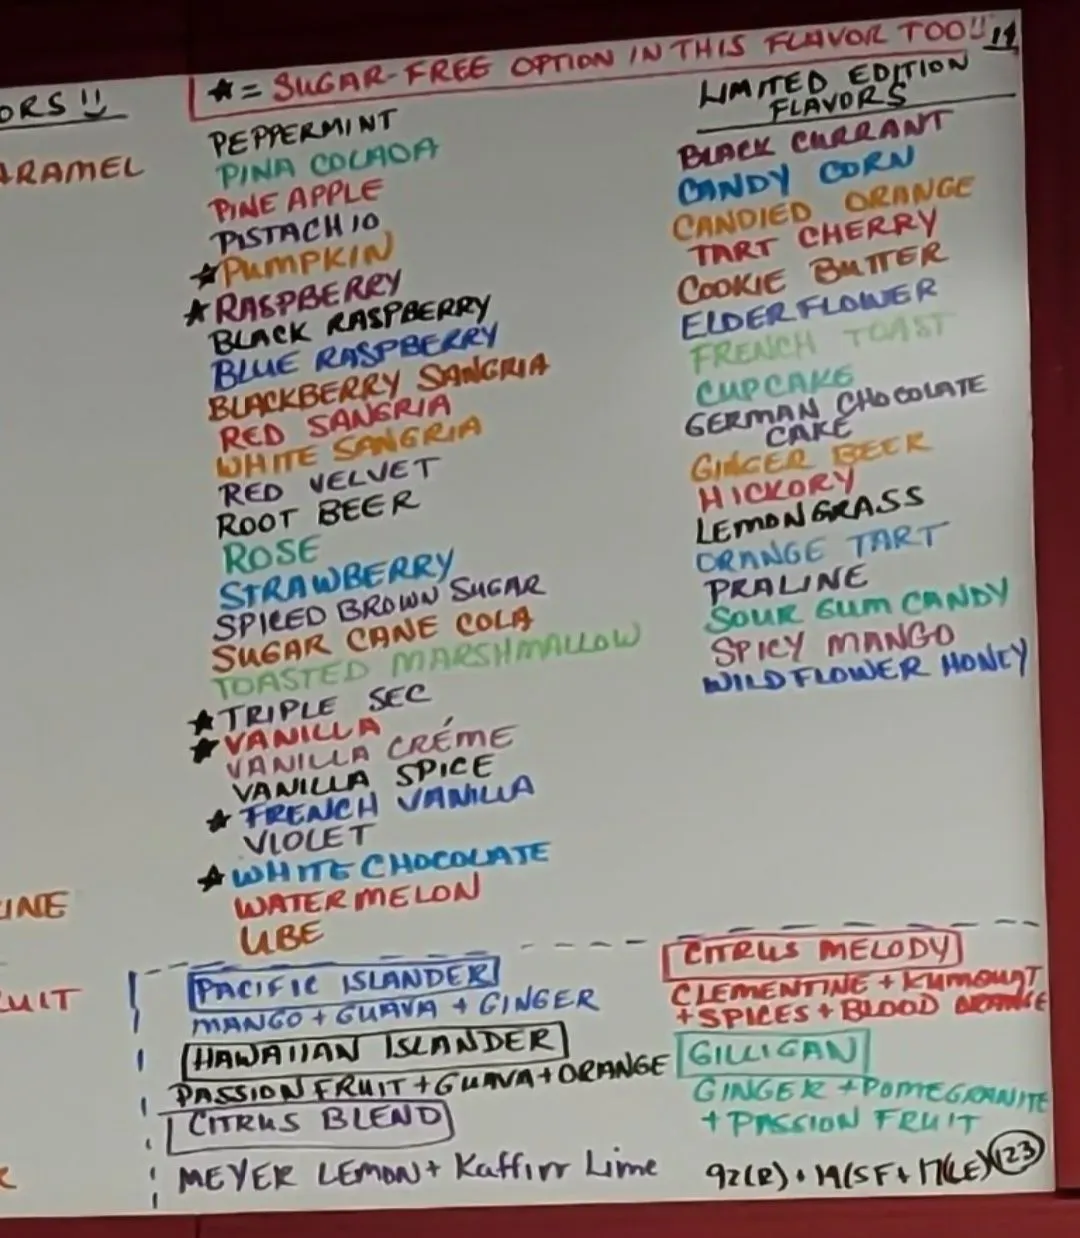 ORS !!
ARAMEL
INE
RUIT
R
★ = SUGAR-FREE OPTION IN THIS FLAVOR TOO!!
PEPPERMINT
PINA COLADA
PINEAPPLE
PISTACHIO
★ PUMPKIN
★ RASPBERRY
BLACK RASPBERRY
BLUE RASPBERRY
BLACKBERRY SANGRIA
RED SANGRIA
WHITE SANGRIA
RED VELVET
ROOT BEER
ROSE
STRAWBERRY
SPICED BROWN SUGAR
SUGAR CANE COLA
TOASTED MARSHMALLOW
★ TRIPLE SEC
★ VANILLA
VANILLA CRÉME
VANILLA SPICE
★ FRENCH VANILLA
VIOLET
★ WHITE CHOCOLATE
WATERMELON
UBE
LIMITED EDITION
FLAVORS
BLACK CURRANT
CANDY CORN
CANDIED ORANGE
TART CHERRY
COOKIE BUTTER
ELDERFLOWER
FRENCH TOAST
CUPCAKE
GERMAN CHOCOLATE
CAKE
GINGER BEER
HICKORY
LEMONGRASS
ORANGE TART
PRALINE
SOUR GUM CANDY
SPICY MANGO
WILDFLOWER HONEY
PACIFIC ISLANDER
MANGO + GUAVA + GINGER
HAWAIIAN ISLANDER
PASSION FRUIT + GUAVA + ORANGE
CITRUS BLEND
MEYER LEMON + Kaffirr Lime
CITRUS MELODY
CLEMENTINE + KUMQUAT
+ SPICES + BLOOD ORANGE
GILLIGAN
GINGER + POMEGRANITE
+ PASSION FRUIT
92(R) + 14(SF + 17(LE) 123